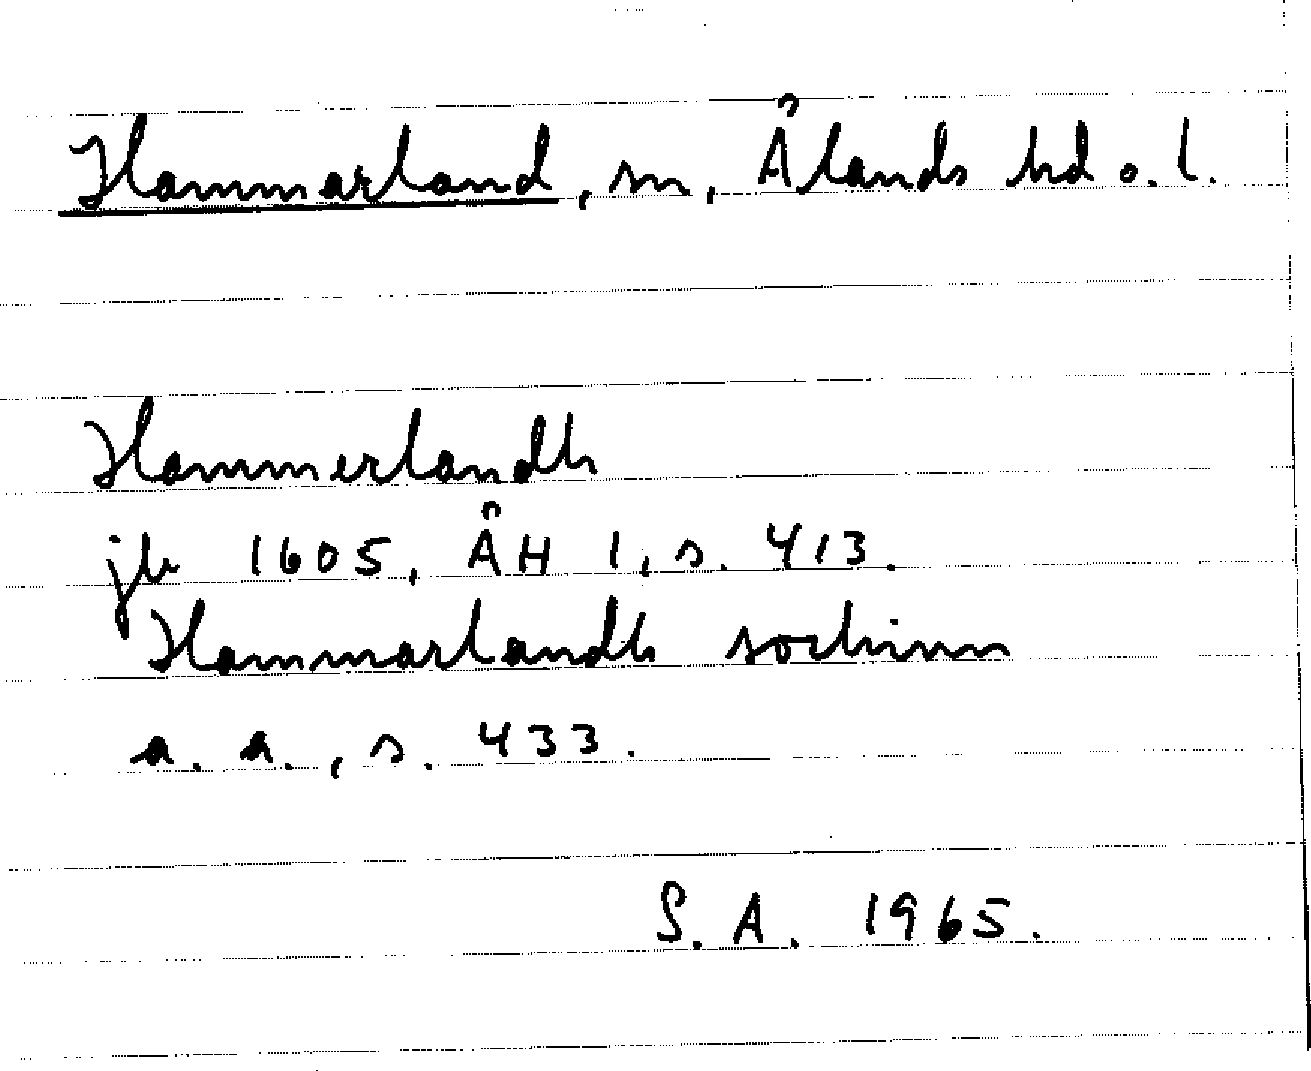 Hammarland, sn, Ålands hd o. l.
Hammerlandh
jb 1605, ÅH 1, s. 413.
Hammarlandh sochinn
a. a., s. 433.
S. A. 1965.